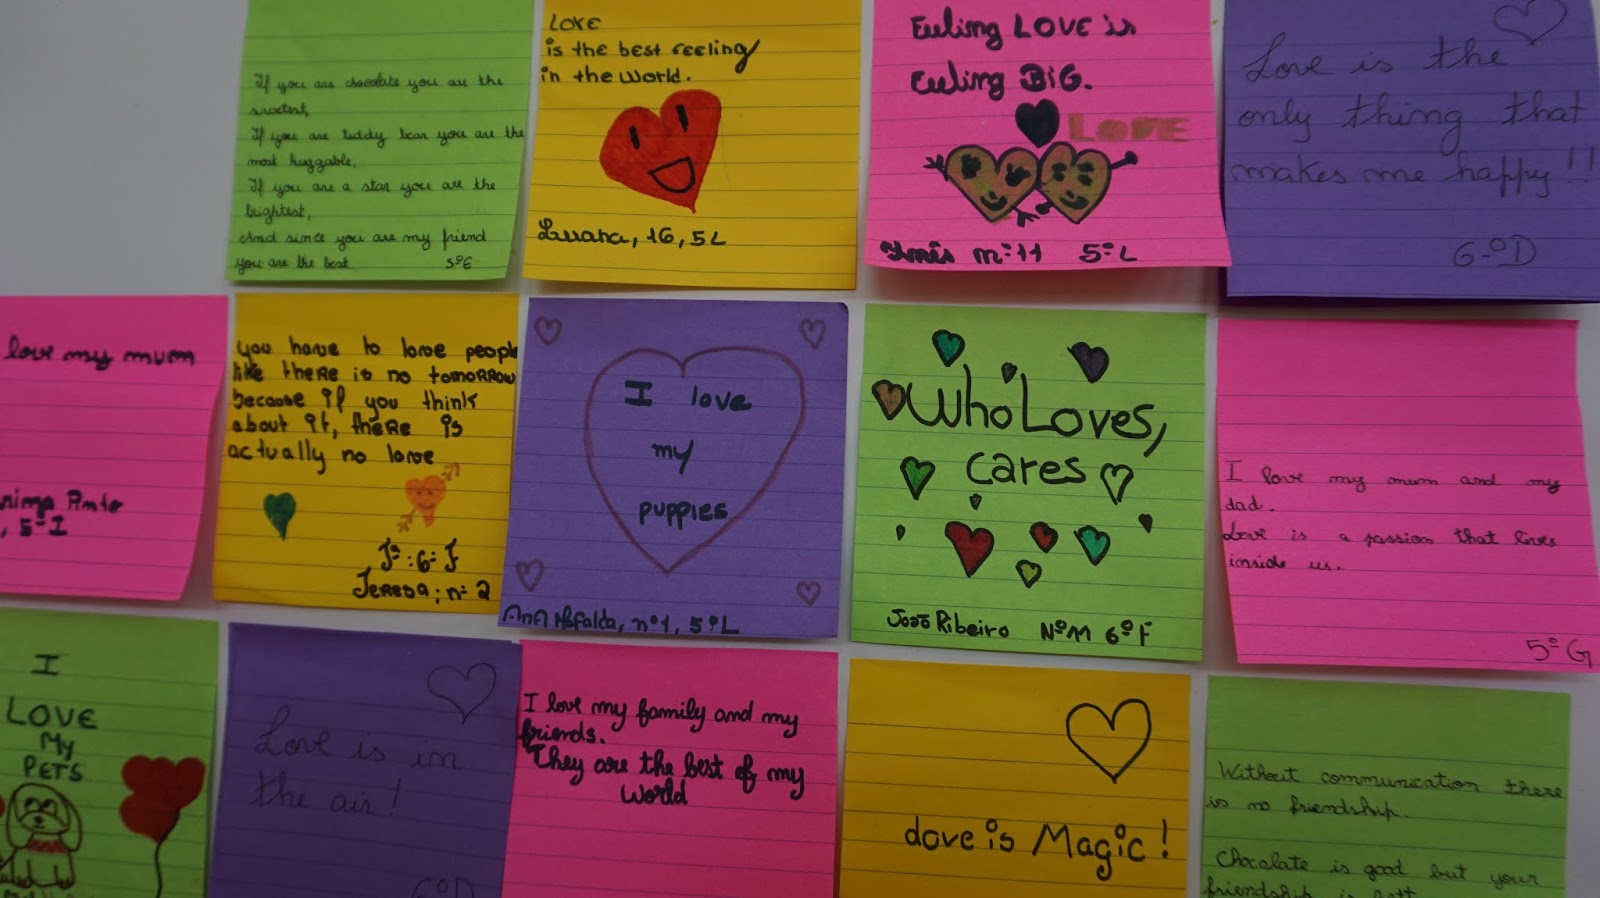 If you are chocolate you are the
sweetest,
If you are teddy bear you are the
most huggable,
If you are a star you are the
brightest,
And since you are my friend
you are the best
5ºE
LOVE
is the best feeling
in the world.
16, 5L
Feeling LOVE is
Feeling BiG.
LOVE
nº11 5ºL
Love is the
only thing that
makes me happy!!
6ºD
love my mum
5ºI
you have to love people
like there is no tomorrow
because if you think
about it, there is
actually no love
Jª:6ºJ
Teresa; nº 2
I love
my
puppies
Ana Mafalda, nº1, 5ºL
Who Loves,
cares
João Ribeiro Nº11 6ºF
I love my mum and my
dad.
Love is a passion that lives
inside us.
5ºG
I
LOVE
My
PETS
Love is in
the air!
6ºD
I love my family and my
friends.
They are the best of my
world
Love is Magic!
Without communication there
is no friendship.
Chocolate is good but your
friendship is